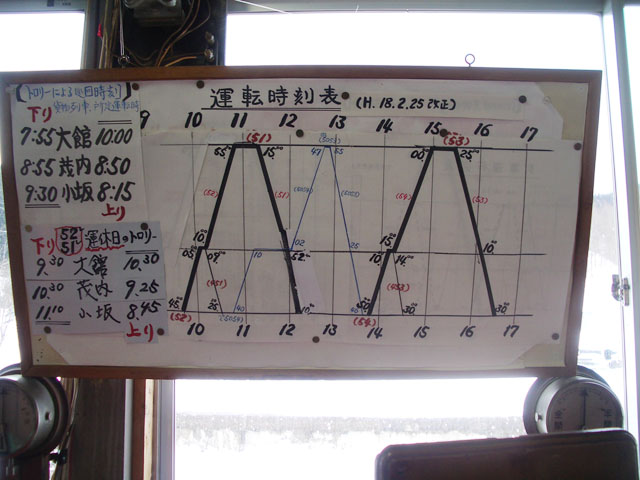 【トロリーによる巡回時刻】
貨物列車、所定運転時
下り
7:55 大館 10:00
8:55 茂内 8:50
9:30 小坂 8:15
上り
下り 52 51 運休日のトロリー
9.30 大館 10.30
10.30 茂内 9.25
11.10 小坂 8.45
上り
運転時刻表 (H.18.2.25改正)
9 10 11 12 13 14 15 16 17
(51) (53)
55 15 47 55 00 25
(52) (51) (54) (53)
10 02 25 15 10
05 09 52 10 14
(451) (453)
45 25 40 10 40 50 30 30
(52) (54)
10 11 12 13 14 15 16 17